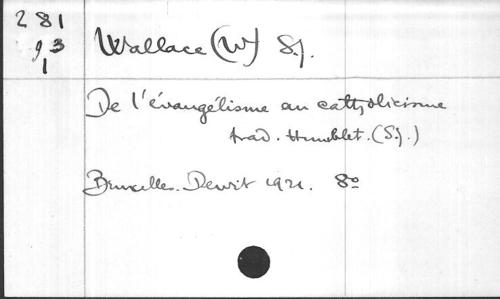 281
93
1
Wallace (W) S.J.
De l'évangélisme au catholicisme
trad. Humblet. (S.J.)
Bruxelles. Dewit 1921. 8º